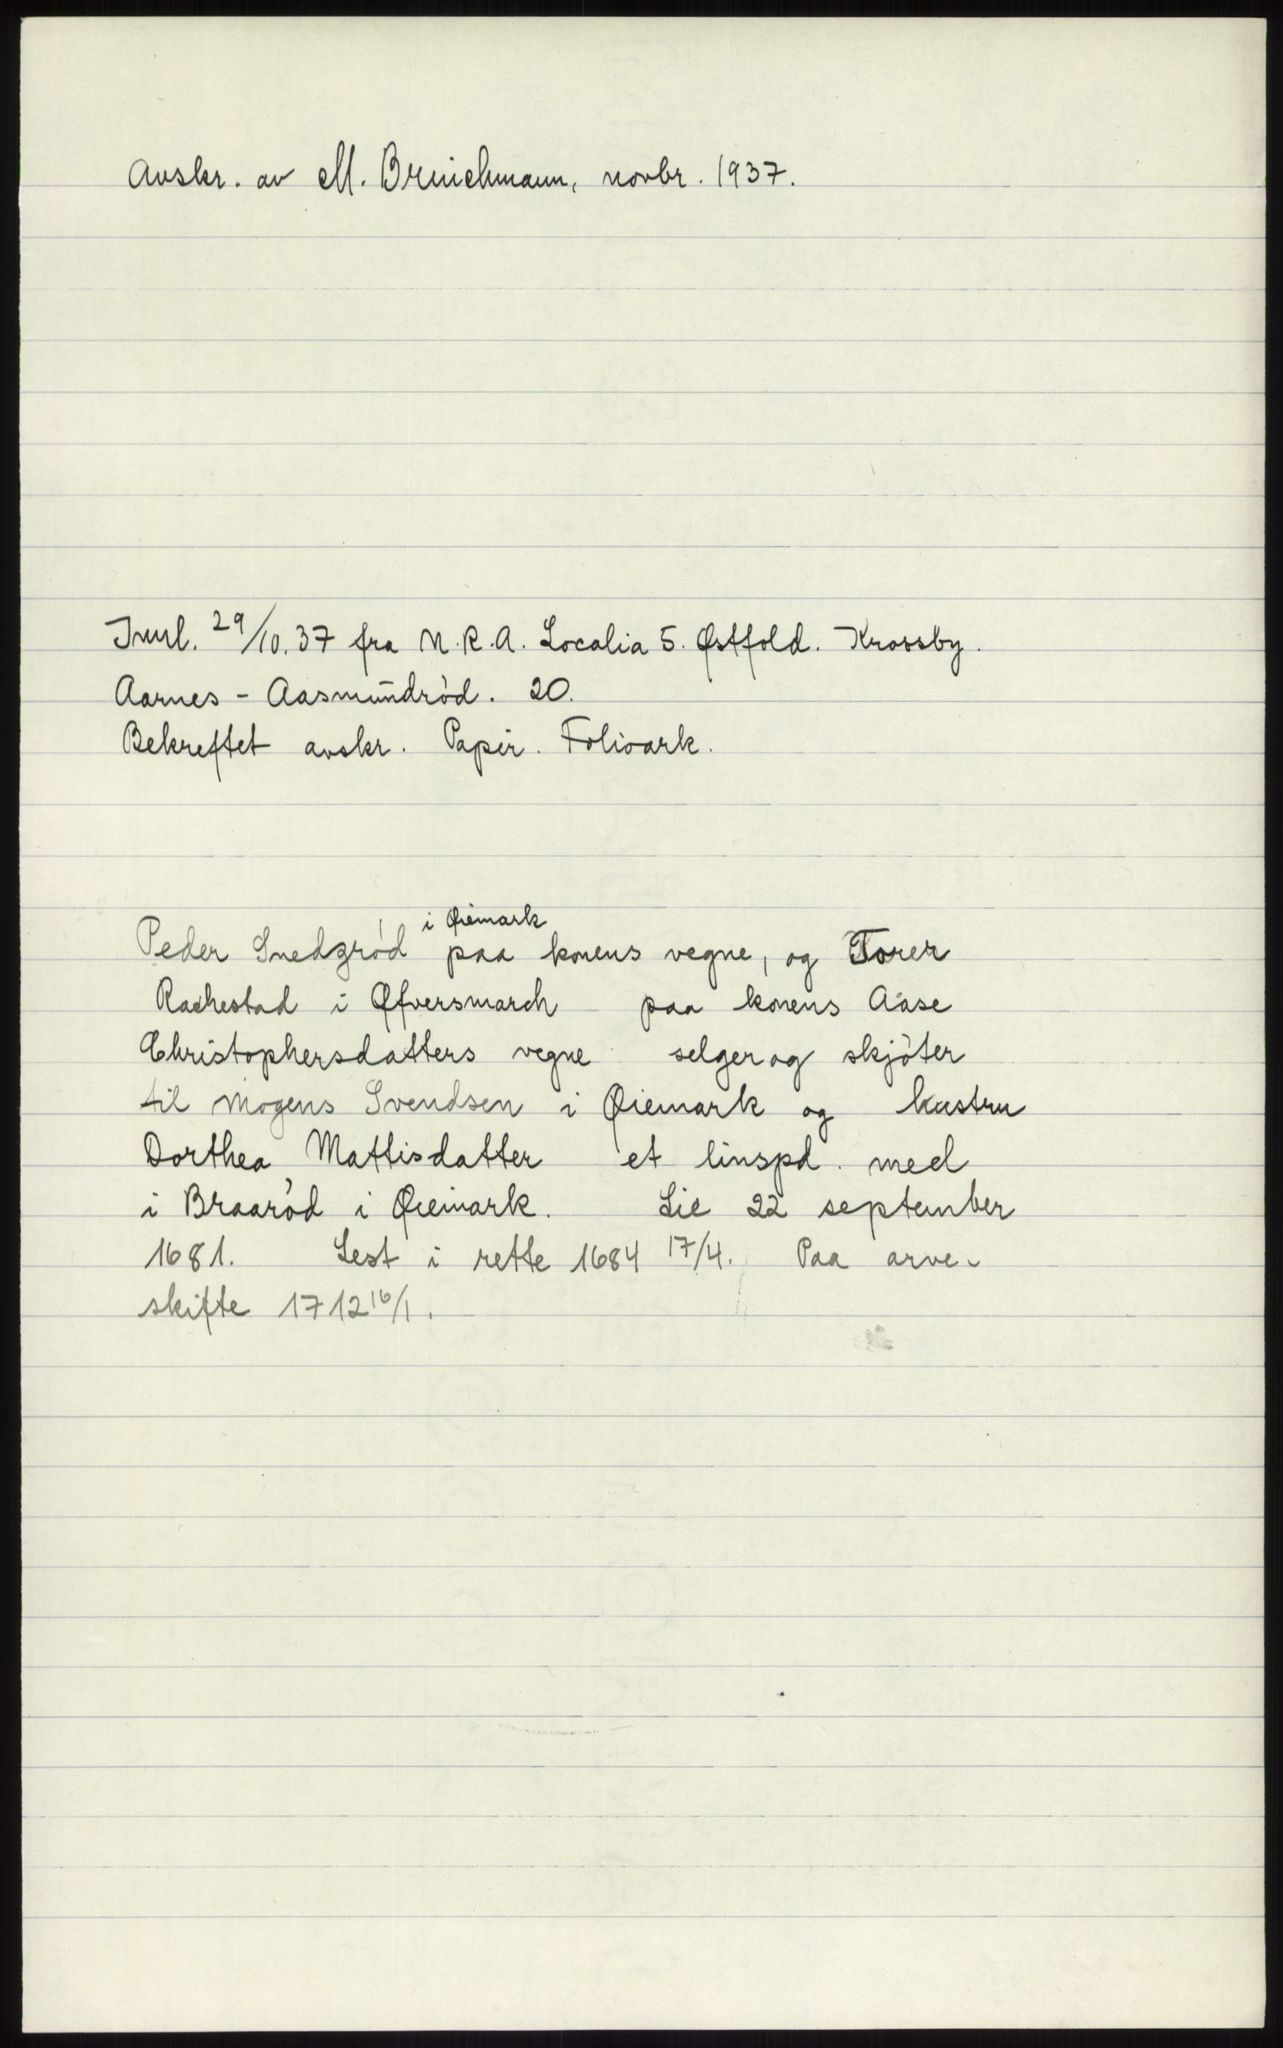 Avskr. av M. Brinchmann, novbr. 1937.
Innl. 29/10. 37 fra N. R. A. Localia 5. Østfold. Krossby.
Aarnes - Aasmundrød. 20.
Bekreftet avskr. Papir. Folioark.
i Øiemark
Peder Snedzrød paa konens vegne, og Torer
Rachestad i Øfversmarch paa konens Aase
Christophersdatters vegne selger og skjøter
til Mogens Svendsen i Øiemark og hustru
Dorthea Mattisdatter et linspd. med
i Braarød i Øiemark. Lie 22 september
1681. Lest i rette 1684 17/4. Paa arve-
skifte 1712 16/1.